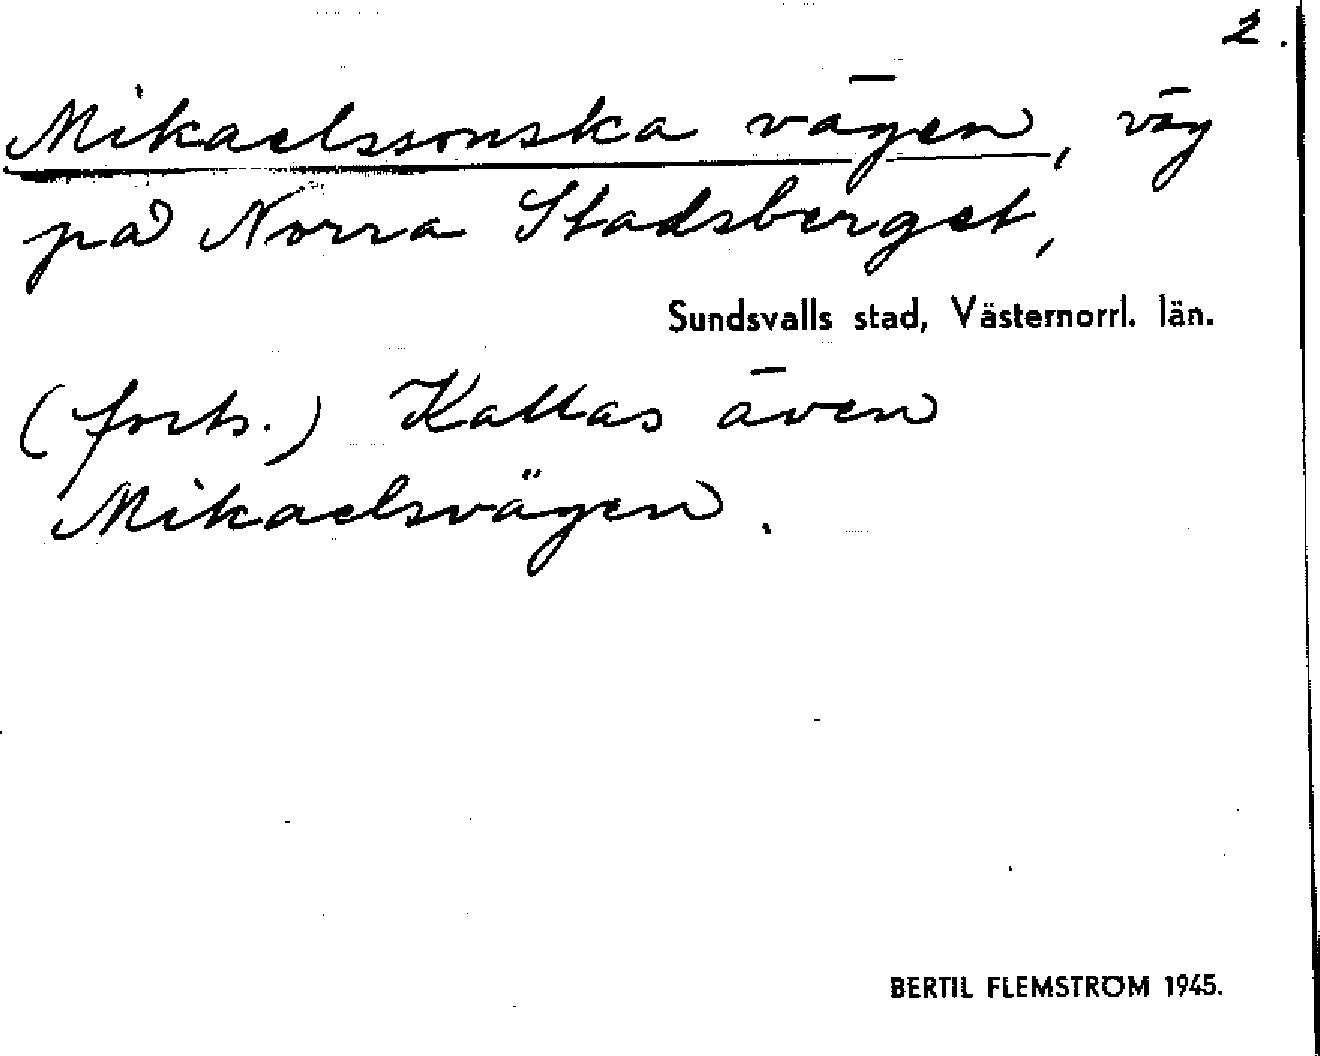 2.
Mikaelssonska vägen, väg
på Norra Stadsberget,
Sundsvalls stad, Västernorrl. län.
(forts.) Kallas även
Mikaelsvägen.
BERTIL FLEMSTRÖM 1945.